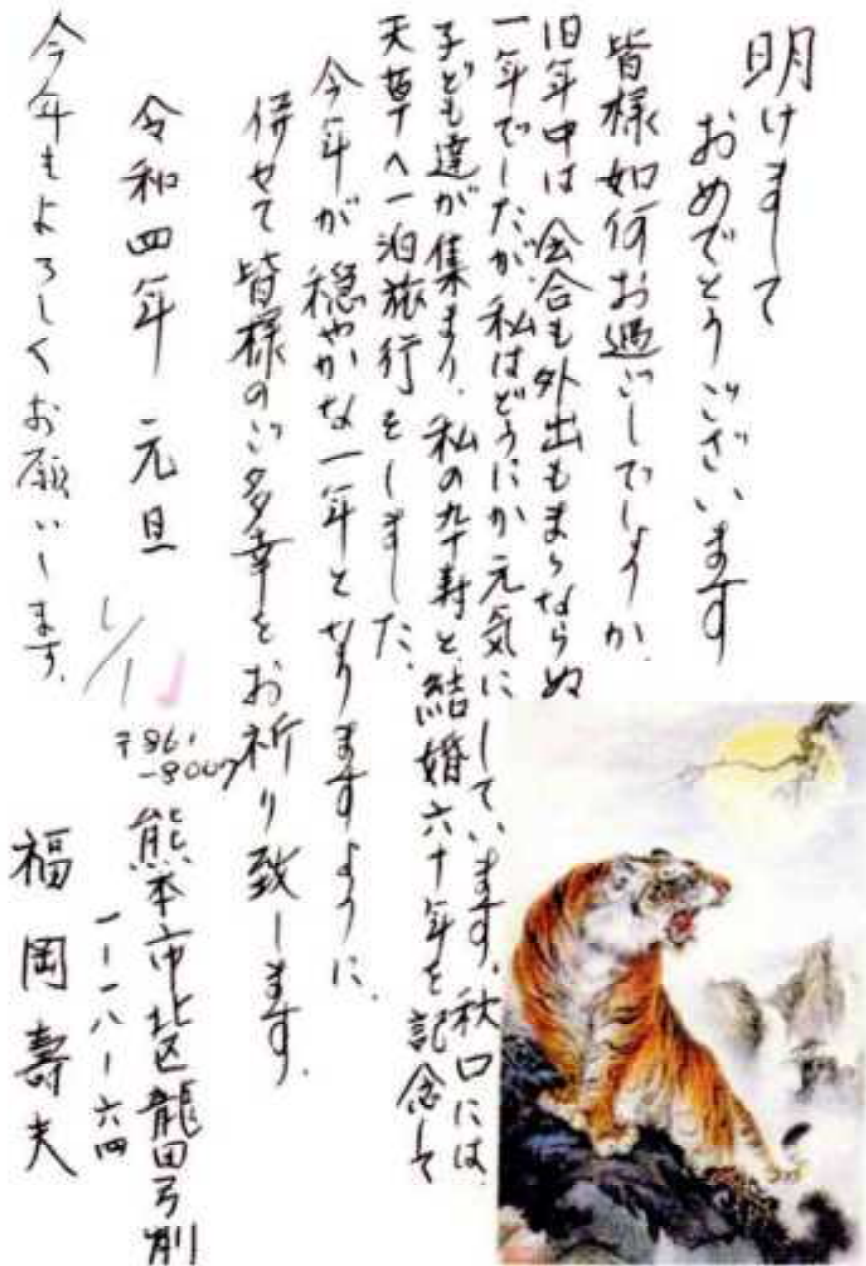 明けまして
おめでとうございます
皆様如何お過ごしでしょうか、
旧年中は会合も外出もまゝならぬ
一年でしたが、私はどうにか元気にしています。秋口には
子ども達が集まり、私の九十寿と結婚六十年を記念して
天草へ一泊旅行をしました、
今年が穏やかな一年となりますように、
併せて皆様のご多幸をお祈り致します。
令和四年 元旦
1/1
〒861-8007
熊本市北区龍田弓削
一-一八-六四
福岡壽夫
今年もよろしくお願いします。